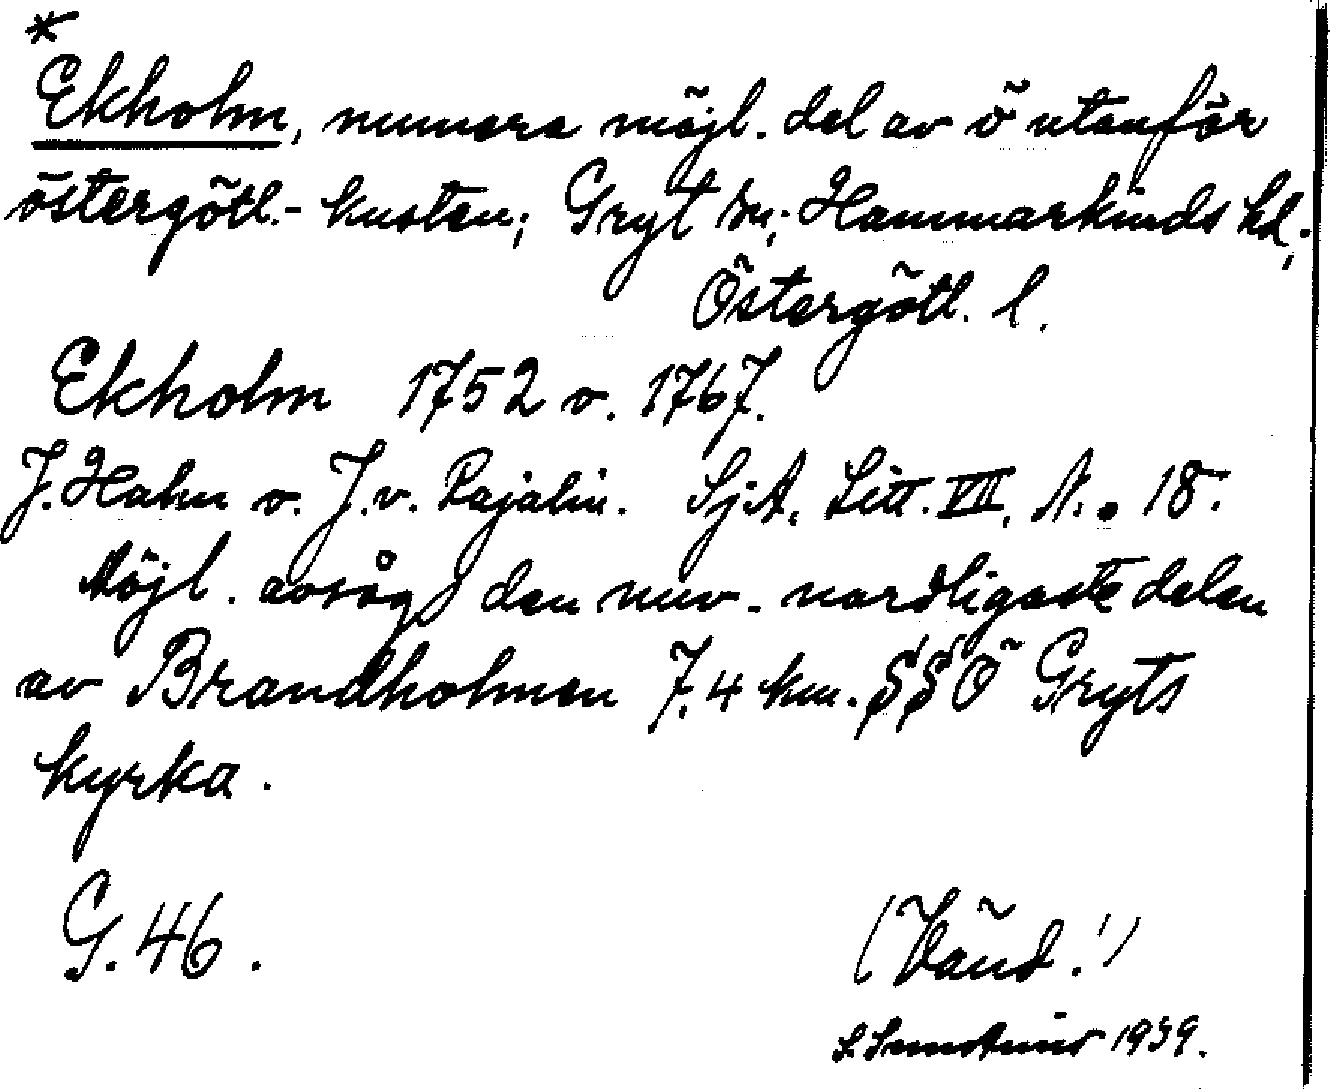 *
Ekholm, numera möjl. del av ö utanför
östergötl.- kusten; Gryt sn; Hammarkinds hd;
Östergötl. l.
Ekholm 1752 o. 1767.
J. Hahn o. J. v. Rajalin. Sj.A. Litt. VII, N. o 18.
Möjl. avsåg den nuv. nordligaste delen
av Brandholmen 7.4 km. SSÖ Gryts
kyrka.
G. 46.
(Vänd!)
1939.